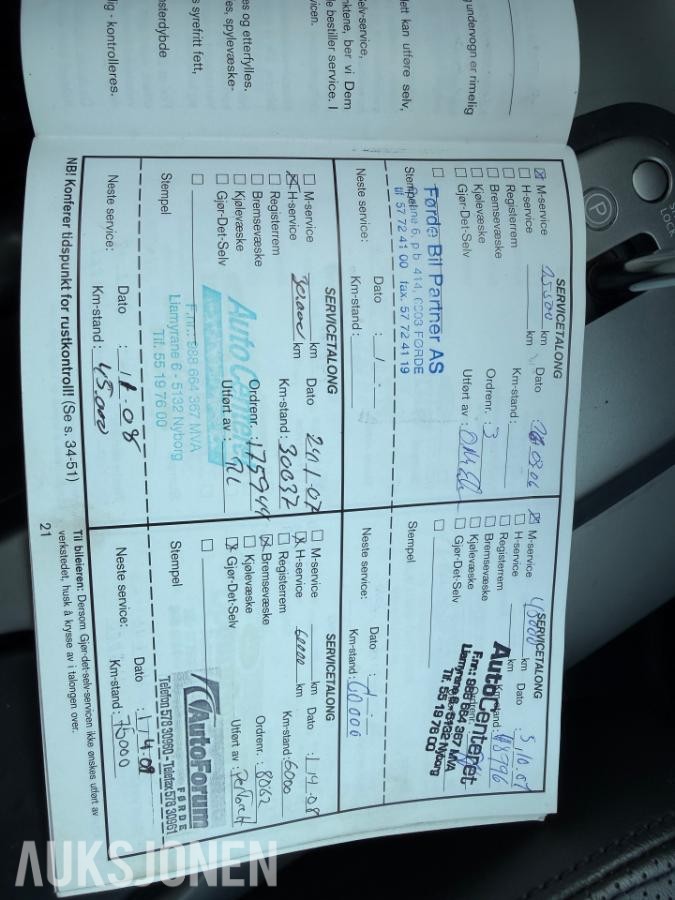 g undervogn er rimelig
lett kan utføre selv,
elv-service,
nktene, ber vi Dem
e bestiller service. I
vicen.
es og etterfylles.
s, spylevæske-
s syrefritt fett,
østerdybde
lig - kontrolleres.
SERVICETALONG
M-service 15500 km Dato
H-service km Km-stand:
Registerrem
Bremsevæske Ordrenr.: 3
Kjølevæske Utført av:
Gjør-Det-Selv
Førde Bil Partner AS
6, p.b. 414, 6803 FØRDE
tlf 57 72 41 00 fax. 57 72 41 19
Stempel
Neste service: Dato :
Km-stand:
SERVICETALONG
M-service 45000 km Dato 5.10.07
H-service km Km-stand: 48796
Registerrem
Bremsevæske
Kjølevæske
Gjør-Det-Selv
AutoCenteret
F.nr.: 988 664 367 MVA
Liamyrane 6 - 5132 Nyborg
Tlf. 55 19 76 00
Stempel
Neste service: Dato :
Km-stand: 60.000
SERVICETALONG
M-service km Dato 24.1.07
H-service 30.000 km Km-stand: 30037
Registerrem
Bremsevæske Ordrenr.: 175944
Kjølevæske Utført av:
Gjør-Det-Selv
F.nr.: 988 664 367 MVA
Liamyrane 6 - 5132 Nyborg
Tlf. 55 19 76 00
Stempel
Neste service: Dato : 11.08
Km-stand: 45.000
SERVICETALONG
M-service km Dato : 1/4.08
H-service 60000 km Km-stand: 6000
Registerrem
Bremsevæske Ordrenr.: 8062
Kjølevæske Utført av:
Gjør-Det-Selv
AutoForum
FØRDE
Telefon 578 30960 - Telefax 578 30961
Stempel
Neste service: Dato : 1/4.09
Km-stand: 75000
NB! Konferer tidspunkt for rustkontroll! (Se s. 34-51)
Til bileieren: Dersom Gjør-det-selv-servicen ikke ønskes utført av
verkstedet, husk å krysse av i talongen over.
21
P
LOCK
AUKSJONEN